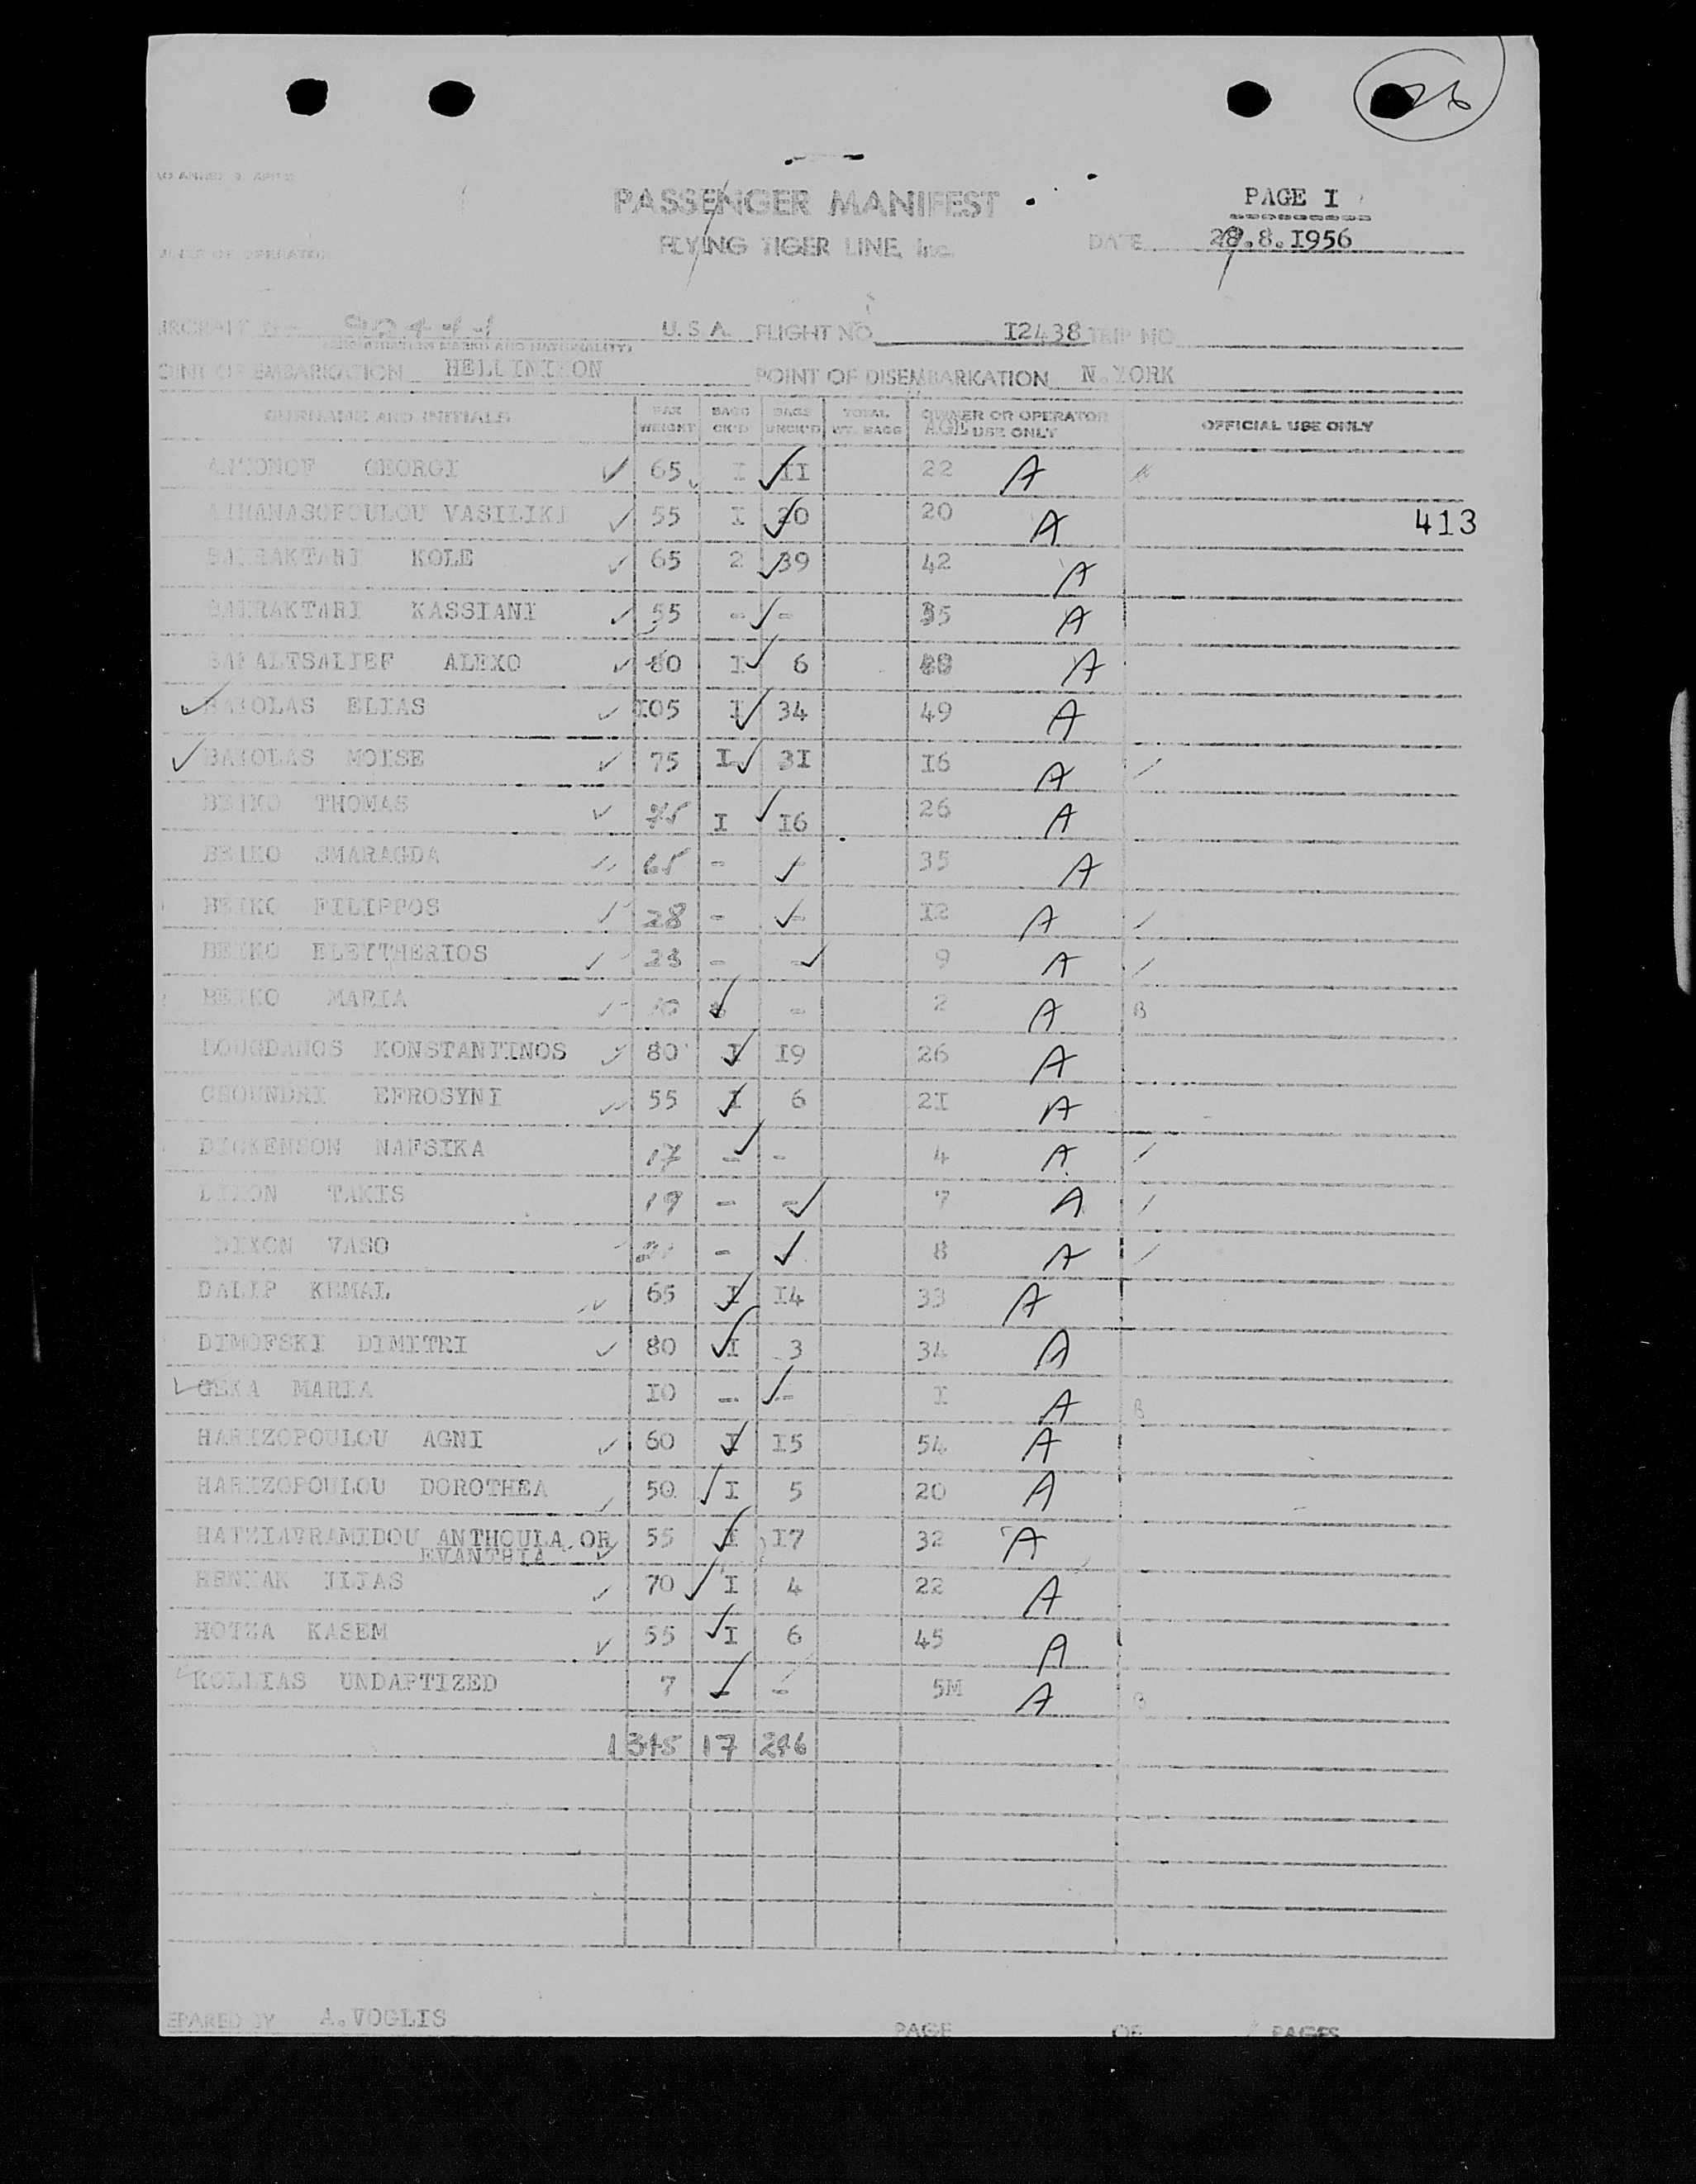 26
PASSENGER MANIFEST
PAGE I
FLYING TIGER LINE, Inc.
DATE 28.8.I956
U.S.A. FLIGHT NO I2438 TRIP NO
POINT OF EMBARKATION HELLINIKON POINT OF DISEMBARKATION N.YORK
SURNAME AND INITIALS PAX WEIGHT BAGG CK'D BAGS UNCK'D TOTAL WT. BAGG OWNER OR OPERATOR USE ONLY AGE OFFICIAL USE ONLY
GEORGI 65 I II 22 A
VASILIKI 55 I 20 20 A
413
KOLE 65 2 39 42 A
KASSIANI 55 - - 35 A
ALEXO 80 I 6 A
ELIAS I05 I 34 49 A
MOISE 75 I 3I I6 A
BEIKO THOMAS 75 I I6 26 A
BEIKO SMARAGDA 65 - - 35 A
BEIKO FILIPPOS 28 - - I2 A
BEIKO ELEYTHERIOS 23 - - 9 A
BEIKO MARIA 10 - - 2 A B
KONSTANTINOS 80 I I9 26 A
EFROSYNI 55 I 6 2I A
DICKENSON NAFSIKA 17 - - 4 A
DIXON TAKIS 19 - - 7 A
DIXON VASO - - 8 A
DALIP KEMAL 65 I I4 33 A
DIMOFSKI DIMITRI 80 I 3 34 A
GEKA MARIA I0 - - I A B
HARIZOPOULOU AGNI 60 I I5 54 A
HARIZOPOULOU DOROTHEA 50 I 5 20 A
HATZIAVRAMIDOU ANTHOULA OR 55 I I7 32 A
EVANTHIA
ILIAS 70 I 4 22 A
HOTZA KASEM 55 I 6 45 A
KOLLIAS UNBAPTIZED 7 - - 5M A B
1345 17 246
PREPARED BY A.VOGLIS
PAGE OF PAGES